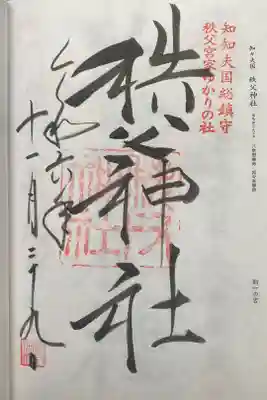 知々夫国 秩父神社
知知夫国総鎮守
秩父宮家ゆかりの社
秩父神社
令和六年
十一月二十九日